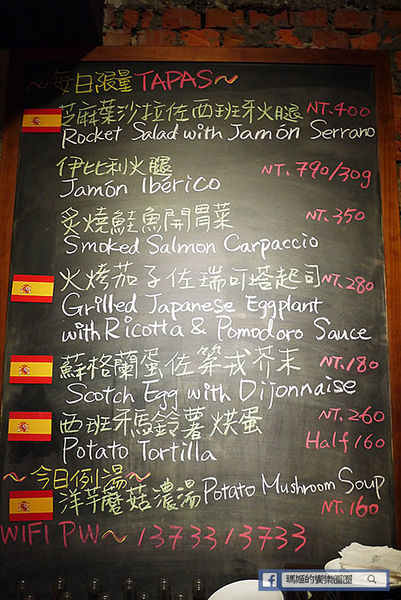 ～每日限量 TAPAS～
芝麻葉沙拉佐西班牙火腿 NT.400
Rocket Salad with Jamón Serrano
伊比利火腿 NT.790/30g
Jamón Ibérico
炙燒鮭魚開胃菜 NT.350
Smoked Salmon Carpaccio
火烤茄子佐瑞可塔起司 NT.280
Grilled Japanese Eggplant
with Ricotta & Pomodoro Sauce
蘇格蘭蛋佐第戎芥末 NT.180
Scotch Egg with Dijonnaise
西班牙馬鈴薯烘蛋 NT.260
Potato Tortilla Half 160
～今日例湯～
洋芋蘑菇濃湯 Potato Mushroom Soup
NT.160
WIFI PW～ 1373313733
瑪姬的餐樂圈圈